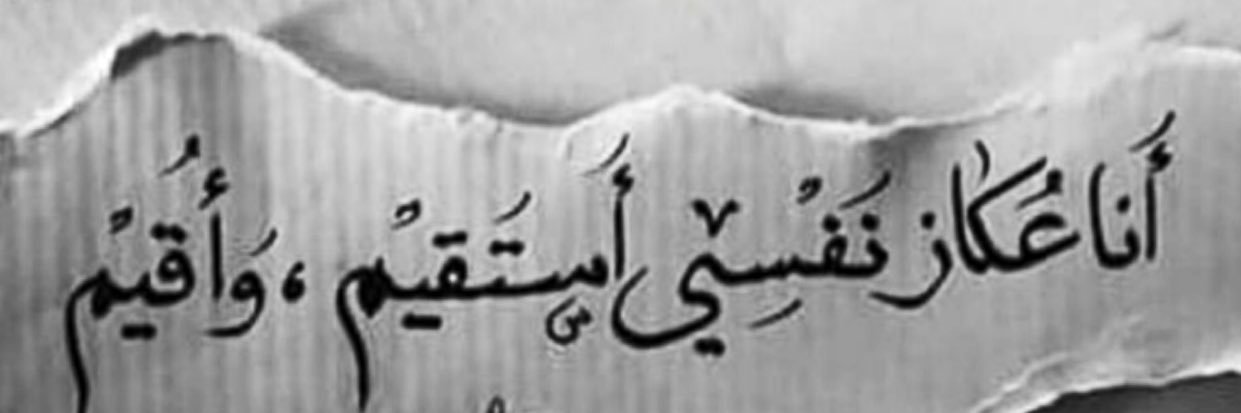 أَنا عُكاز نَفْسِيْ أَستَقيْم ، وَأُقيْم